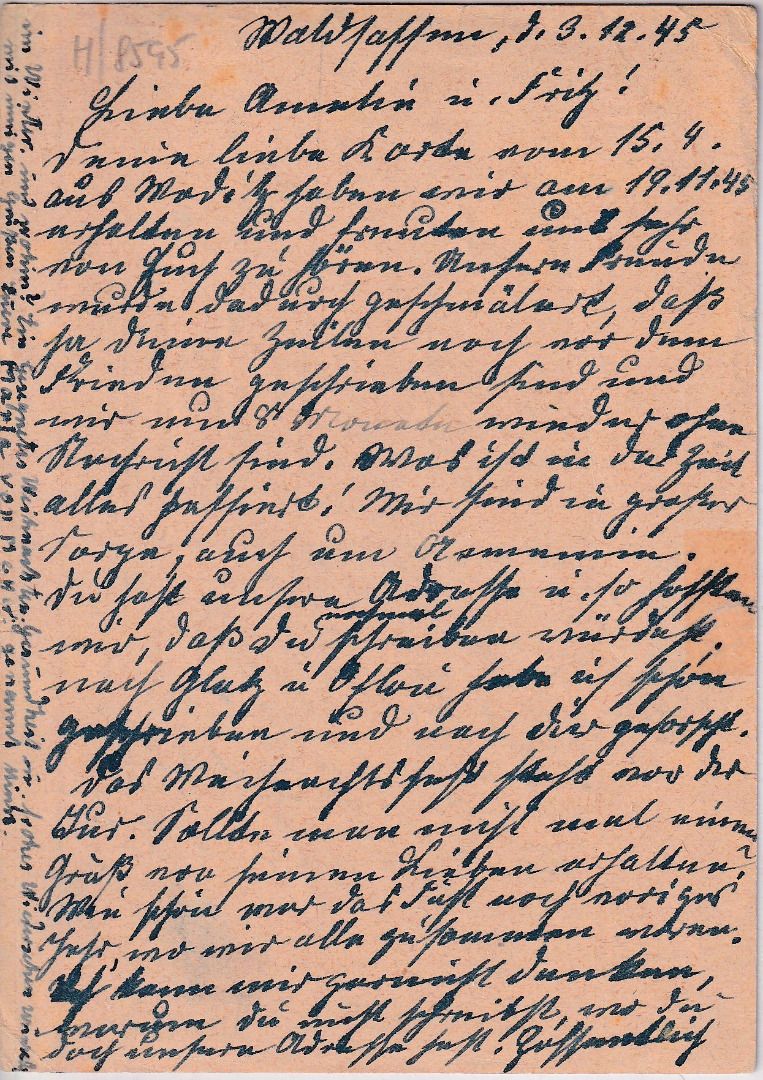 H/8595
Waldsassen, d. 3.12.45
Liebe Amelie u. Fritz!
Deine liebe Karte vom 15.4.
aus haben wir am 19.11.45
erhalten und freuten uns sehr
von Euch zu hören. Unsere Freude
wurde dadurch geschmälert, daß
ja Deine Zeilen noch vor dem
Frieden geschrieben sind und
wir nun 8 Monate wieder ohne
Nachricht sind. Was ist in der Zeit
alles passiert! Wir sind in großer
Sorge, auch um
Du hast unsere Adresse u. so hofften
wir, daß Du nochmal schreiben würdest.
nach Glatz u. habe ich schon
geschrieben und nach Dir geforscht.
Das Weihnachtsfest steht vor der
Tür. Sollte man nicht mal einen
Gruß von seinen Lieben erhalten?
Wie schön war das Fest noch voriges
Jahr, wo wir alle zusammen waren.
Ich kann mir garnicht denken,
warum Du nicht schreibst, wo Du
doch unsere Adresse hast. Hoffentlich
im Winter und wohin? Ein gesegnetes Weihnachten, Gesundheit u. frohes
mit innigen Grüßen Deine